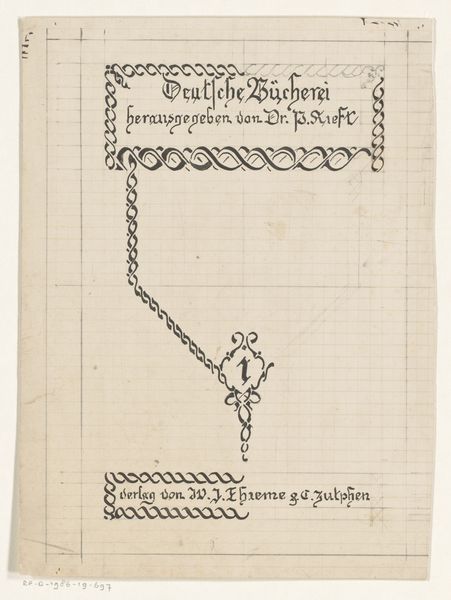 Deutsche Bücherei
herausgegeben von Dr. P. Rieft
1
Verlag von W. J. Thieme & C. Zutphen
RP-D-1986-19-697